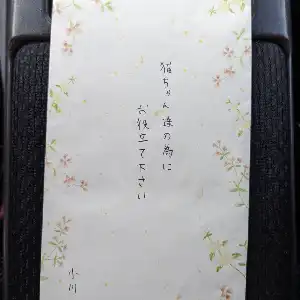 猫ちゃん達の為に
お役立て下さい
小川